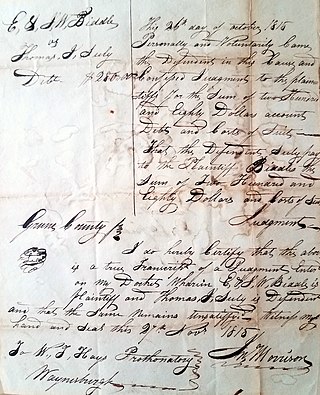 E. & J. W. Biddle
vs
Thomas J. July
Debt $280.00
The 26th day of october 1815
Personally and Voluntarily Came
the Defendent in this Cause and
Confessed Judgment to the plain
tiffs for the Sum of two Hundred
and Eighty Dollars account
Debts and Costs of Suit
That the Defendent July pay
to the Plaintiff Biddle the
Sum of two Hundred and
Eighty Dollars and Costs of Suit
Judgment
Green County ss
I do hereby Certify that the above
is a true Transcript of a Judgment Entered
on my Docket Wharein E. & J. W. Biddle is
Plaintiff and Thomas J. July is Defendent
and that the Same Remains unsatisfied Witness my
hand and seal this 9th Novr 1815
To W. T. Hays Prothonatory
Morrison
Waynesburgh